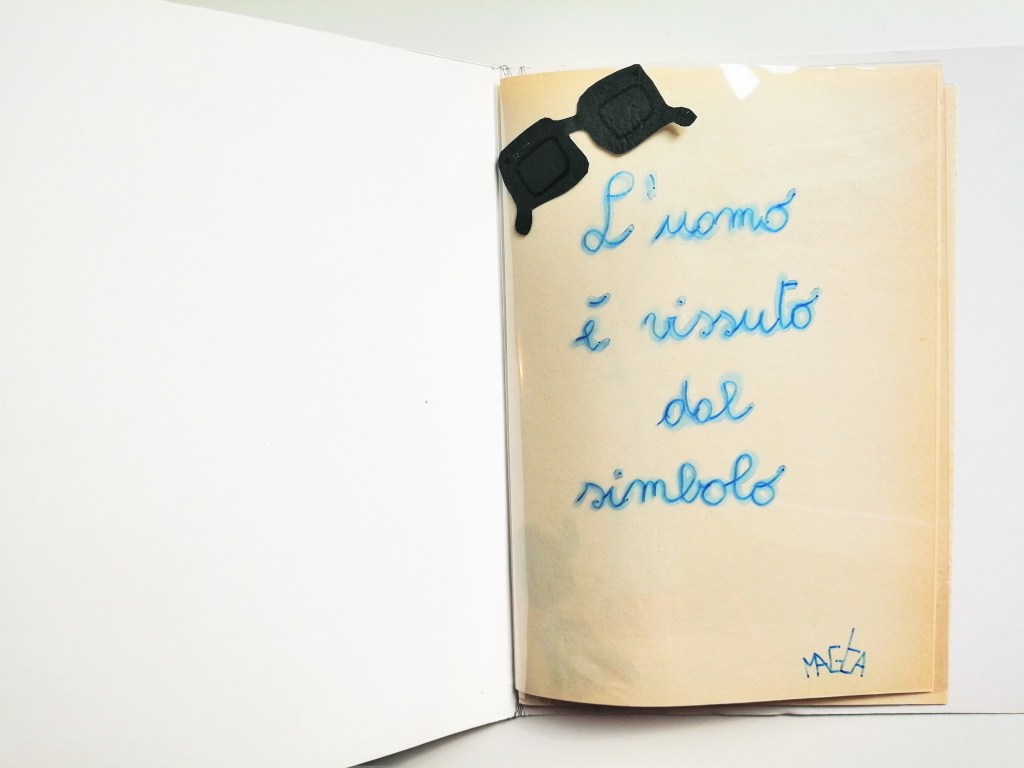 L'uomo
è vissuto
dal
simbolo
MAGLA